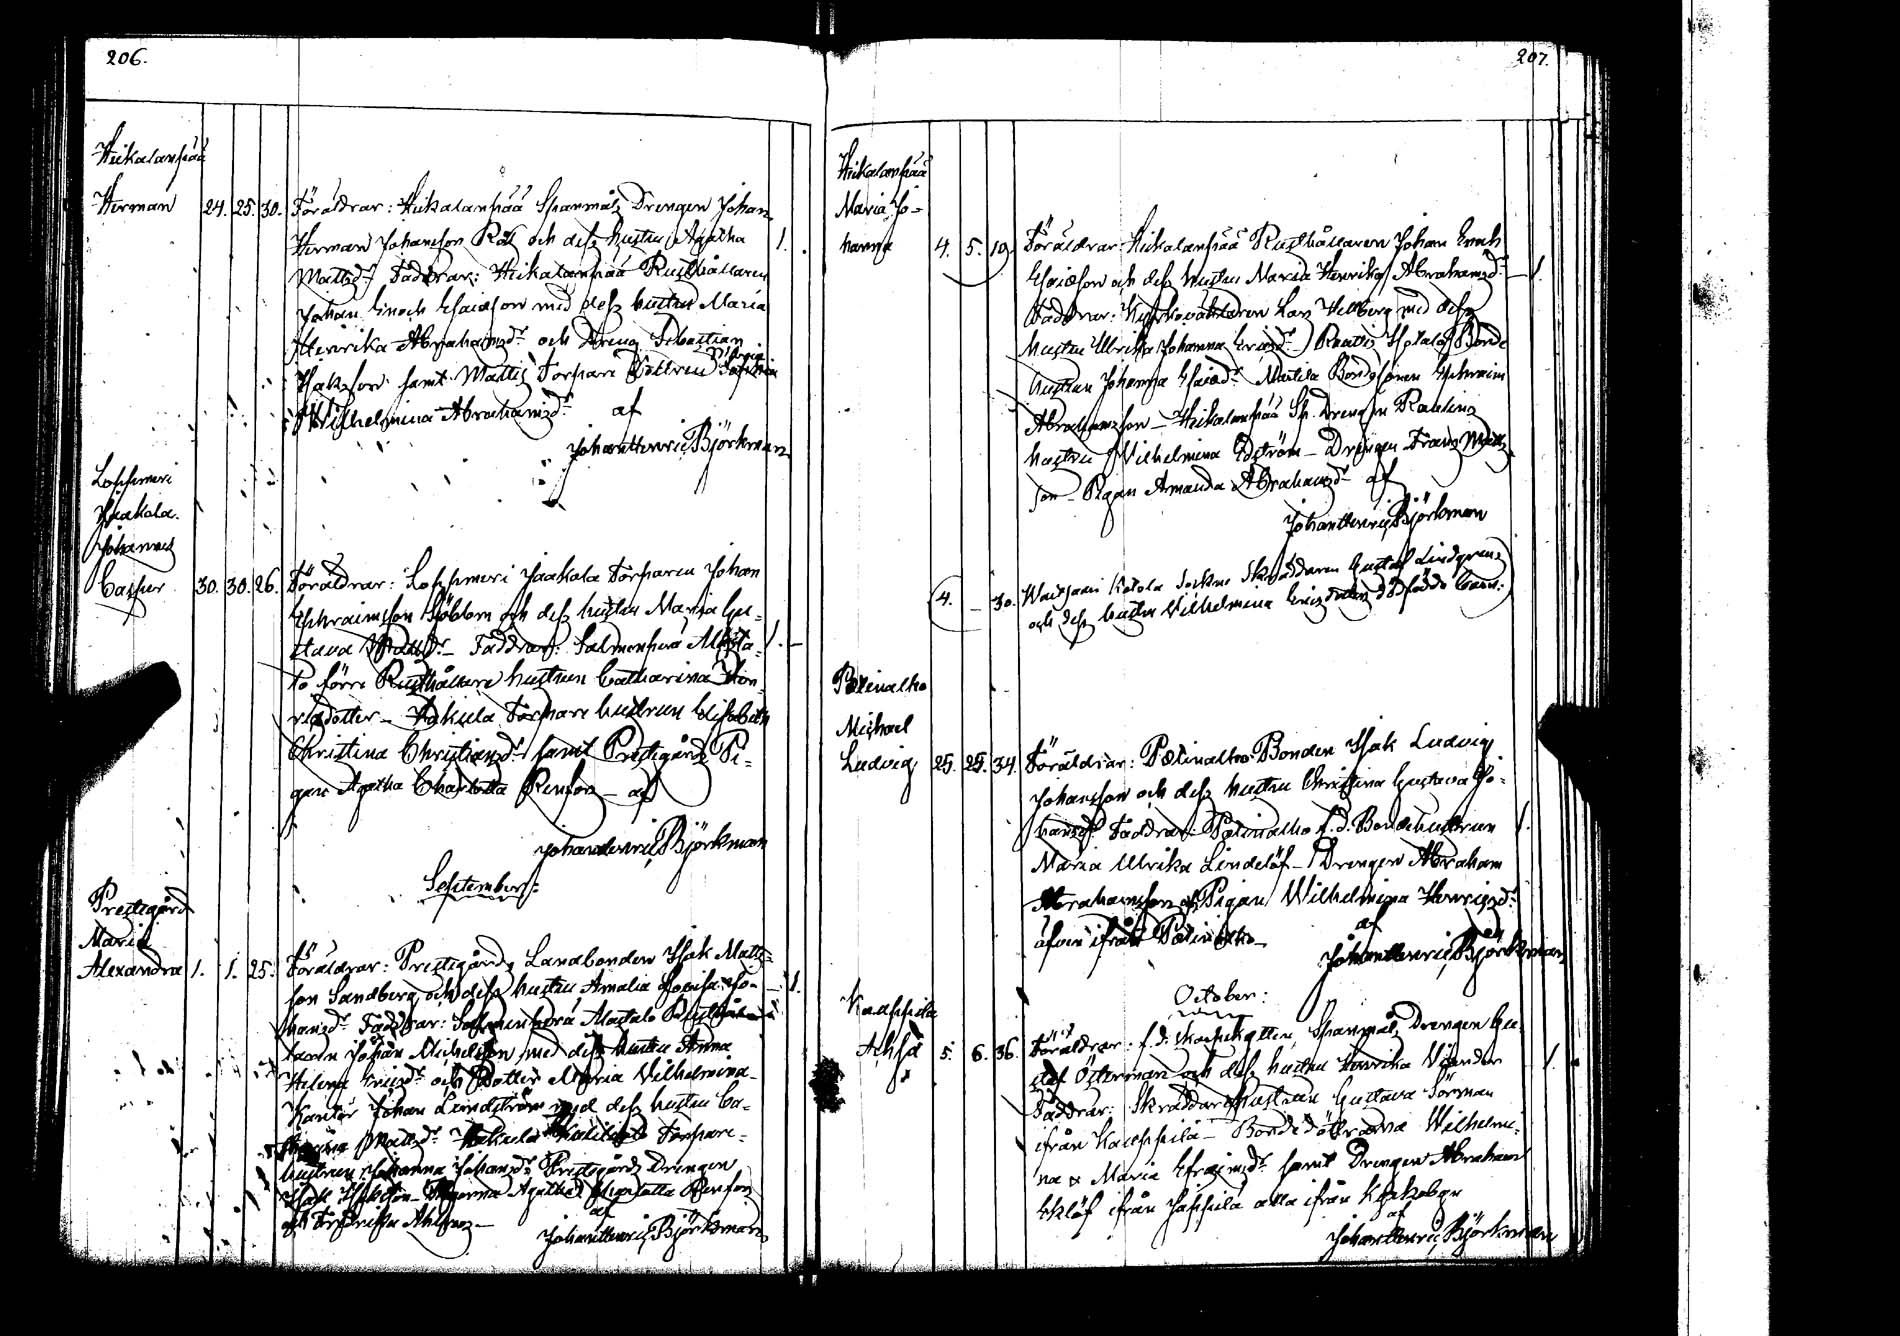 206.
Heikalanpää
Herman 24. 25. 30. Föräldrar: Heikalanpää Spanmåls Drengen Johan
Herman Johansson Råk och dess hustru Agatha 1.
Mattsd:r Faddrar: Heikalanpää Rusthållaren
Johan Enoch Esaiasson med dess hustru Maria
Henrika Abrahamsd:r och Dreng Sebastian
Isaksson samt Mattis Torpare
Wilhelmina Abrahamsd:r af
Johan Henric Björkman
Loppmeri
Jaakola
Johannes
Casper 30. 30. 26. Föräldrar: Loppmeri Jaakola Torparen Johan
Ephraimsson Sjöblom och dess hustru Maria Gu-
stava Mattsd:r – Faddrar: Salmenperä Alasta- 1. –
lo förre Rusthållare hustrun Catharina Hen-
riksdotter – Hakula Torpare hustrun Elisabeth
Christina Christiansd:r samt Prestgårds Pi-
gan Agatha Charlotta Renfors – af
Johan Henric Björkman
September:
Prestegård
Maria
Alexandra 1. 1. 25. Föräldrar: Prestegårds Landbonden Isak Matts-
son Sandberg och dess hustru Amalia Lovisa Jo- – 1.
hansd:r Faddrar: Salmenperä Alastalo Rusthål-
laren Johan Michelsson med dess hustru Anna
Helena Ericsd:r och Dotter Maria Vilhelmina –
Kantor Johan Lindström med dess hustru Ca-
Mattsd:r Hakula Torpare-
hustrun Johanna Johansd:r Prestgårds Drengen
Isak Isaksson – Pigorna Agatha Charlotta Renfors
och Fredrika –
af
Johan Henric Björkman
207.
Heikalanpää
Maria Jo-
hanna 4. 5. 19. Föräldrar Heikalanpää Rusthållaren Johan Enoch
Esaiasson och dess hustru Maria Henrika Abrahamsd:r – 1.
Faddrar: Kyrkoväktaren Lars Hellberg med dess
hustru Ulrika Johanna Ericsd:r – Raattis Isotalo Bonde
hustrun Johanna Esaiasd:r Mattila Bondesonen Ephraim
Abrahamsson – Heikalanpää Sp. Drengen
hustru Wilhelmina Edström – Drengen Frans Matts-
son – Pigan Amanda Abrahamsd:r af
Johan Henric Björkman
4. – 30. Ketola Sockne Skräddaren Gustaf Lindgrens
och dess hustru Wilhelmina Ericsdotters dödfödde barn.
Pelinalho
Michael
Ludvig 25. 25. 34. Föräldrar: Pelinalho Bonden Isak Ludvig
Johansson och dess hustru Christina Gustava Jo-
hansd:r Faddrar: Pelinalho f.d. Bondehustrun 1.
Maria Ulrika Lindelöf – Drengen Abraham
Abrahamsson och Pigan Wilhelmina Henricsd:r
äfven ifrån Pelinalho –
af
Johan Henric Björkman
October:
Kauppila
Achsa 5. 6. 36. Föräldrar: f.d. Spanmåls Drengen Gu-
staf Österman och dess hustru Henrika Viander 1.
Faddrar: Skräddare hustrun Gustava Törman
ifrån Kauppila – Bondedöttrarna Wilhelmi-
na & Maria Efraimsd:r samt Drengen Abraham
Eklöf ifrån Jaffila alla ifrån
af
Johan Henric Björkman